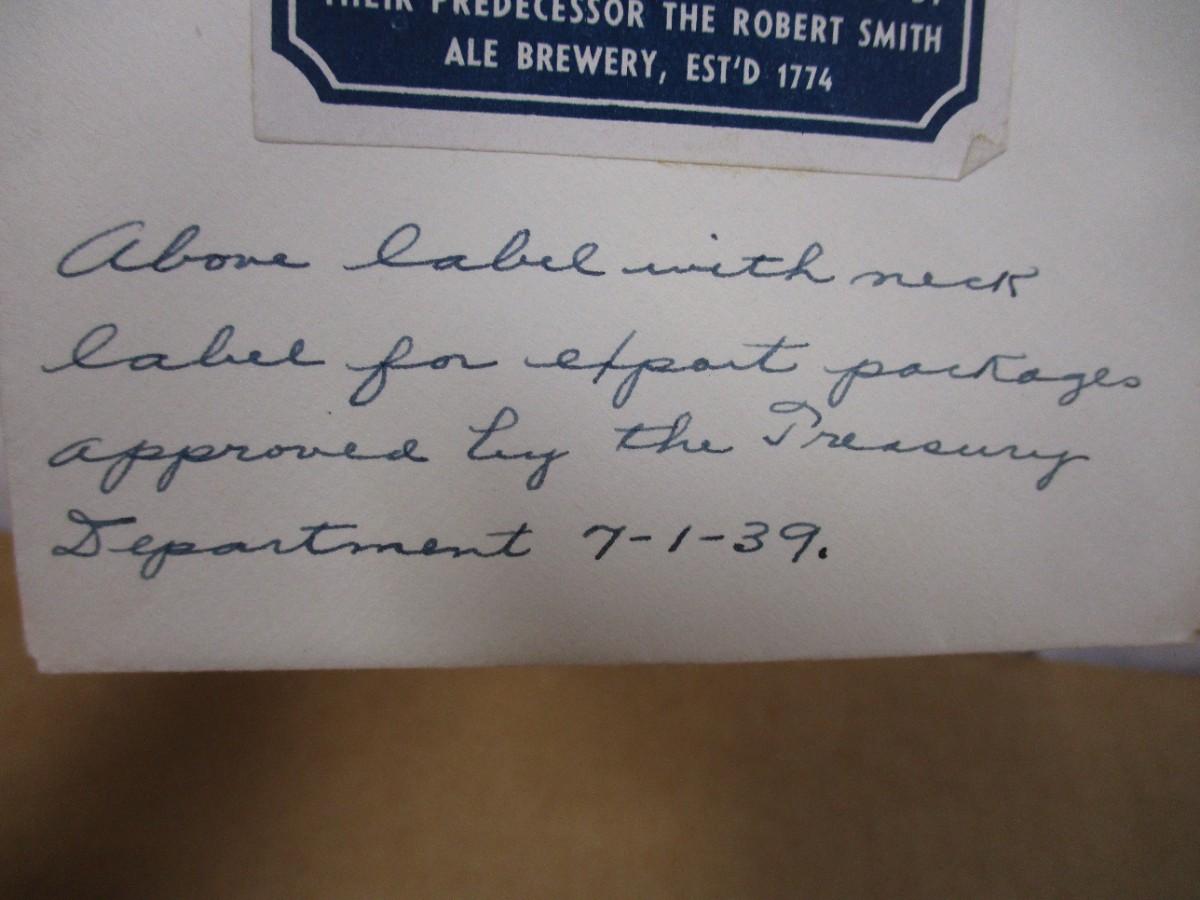 THEIR PREDECESSOR THE ROBERT SMITH
ALE BREWERY, EST'D 1774
Above label with neck
label for export packages
approved by the Treasury
Department 7-1-39.